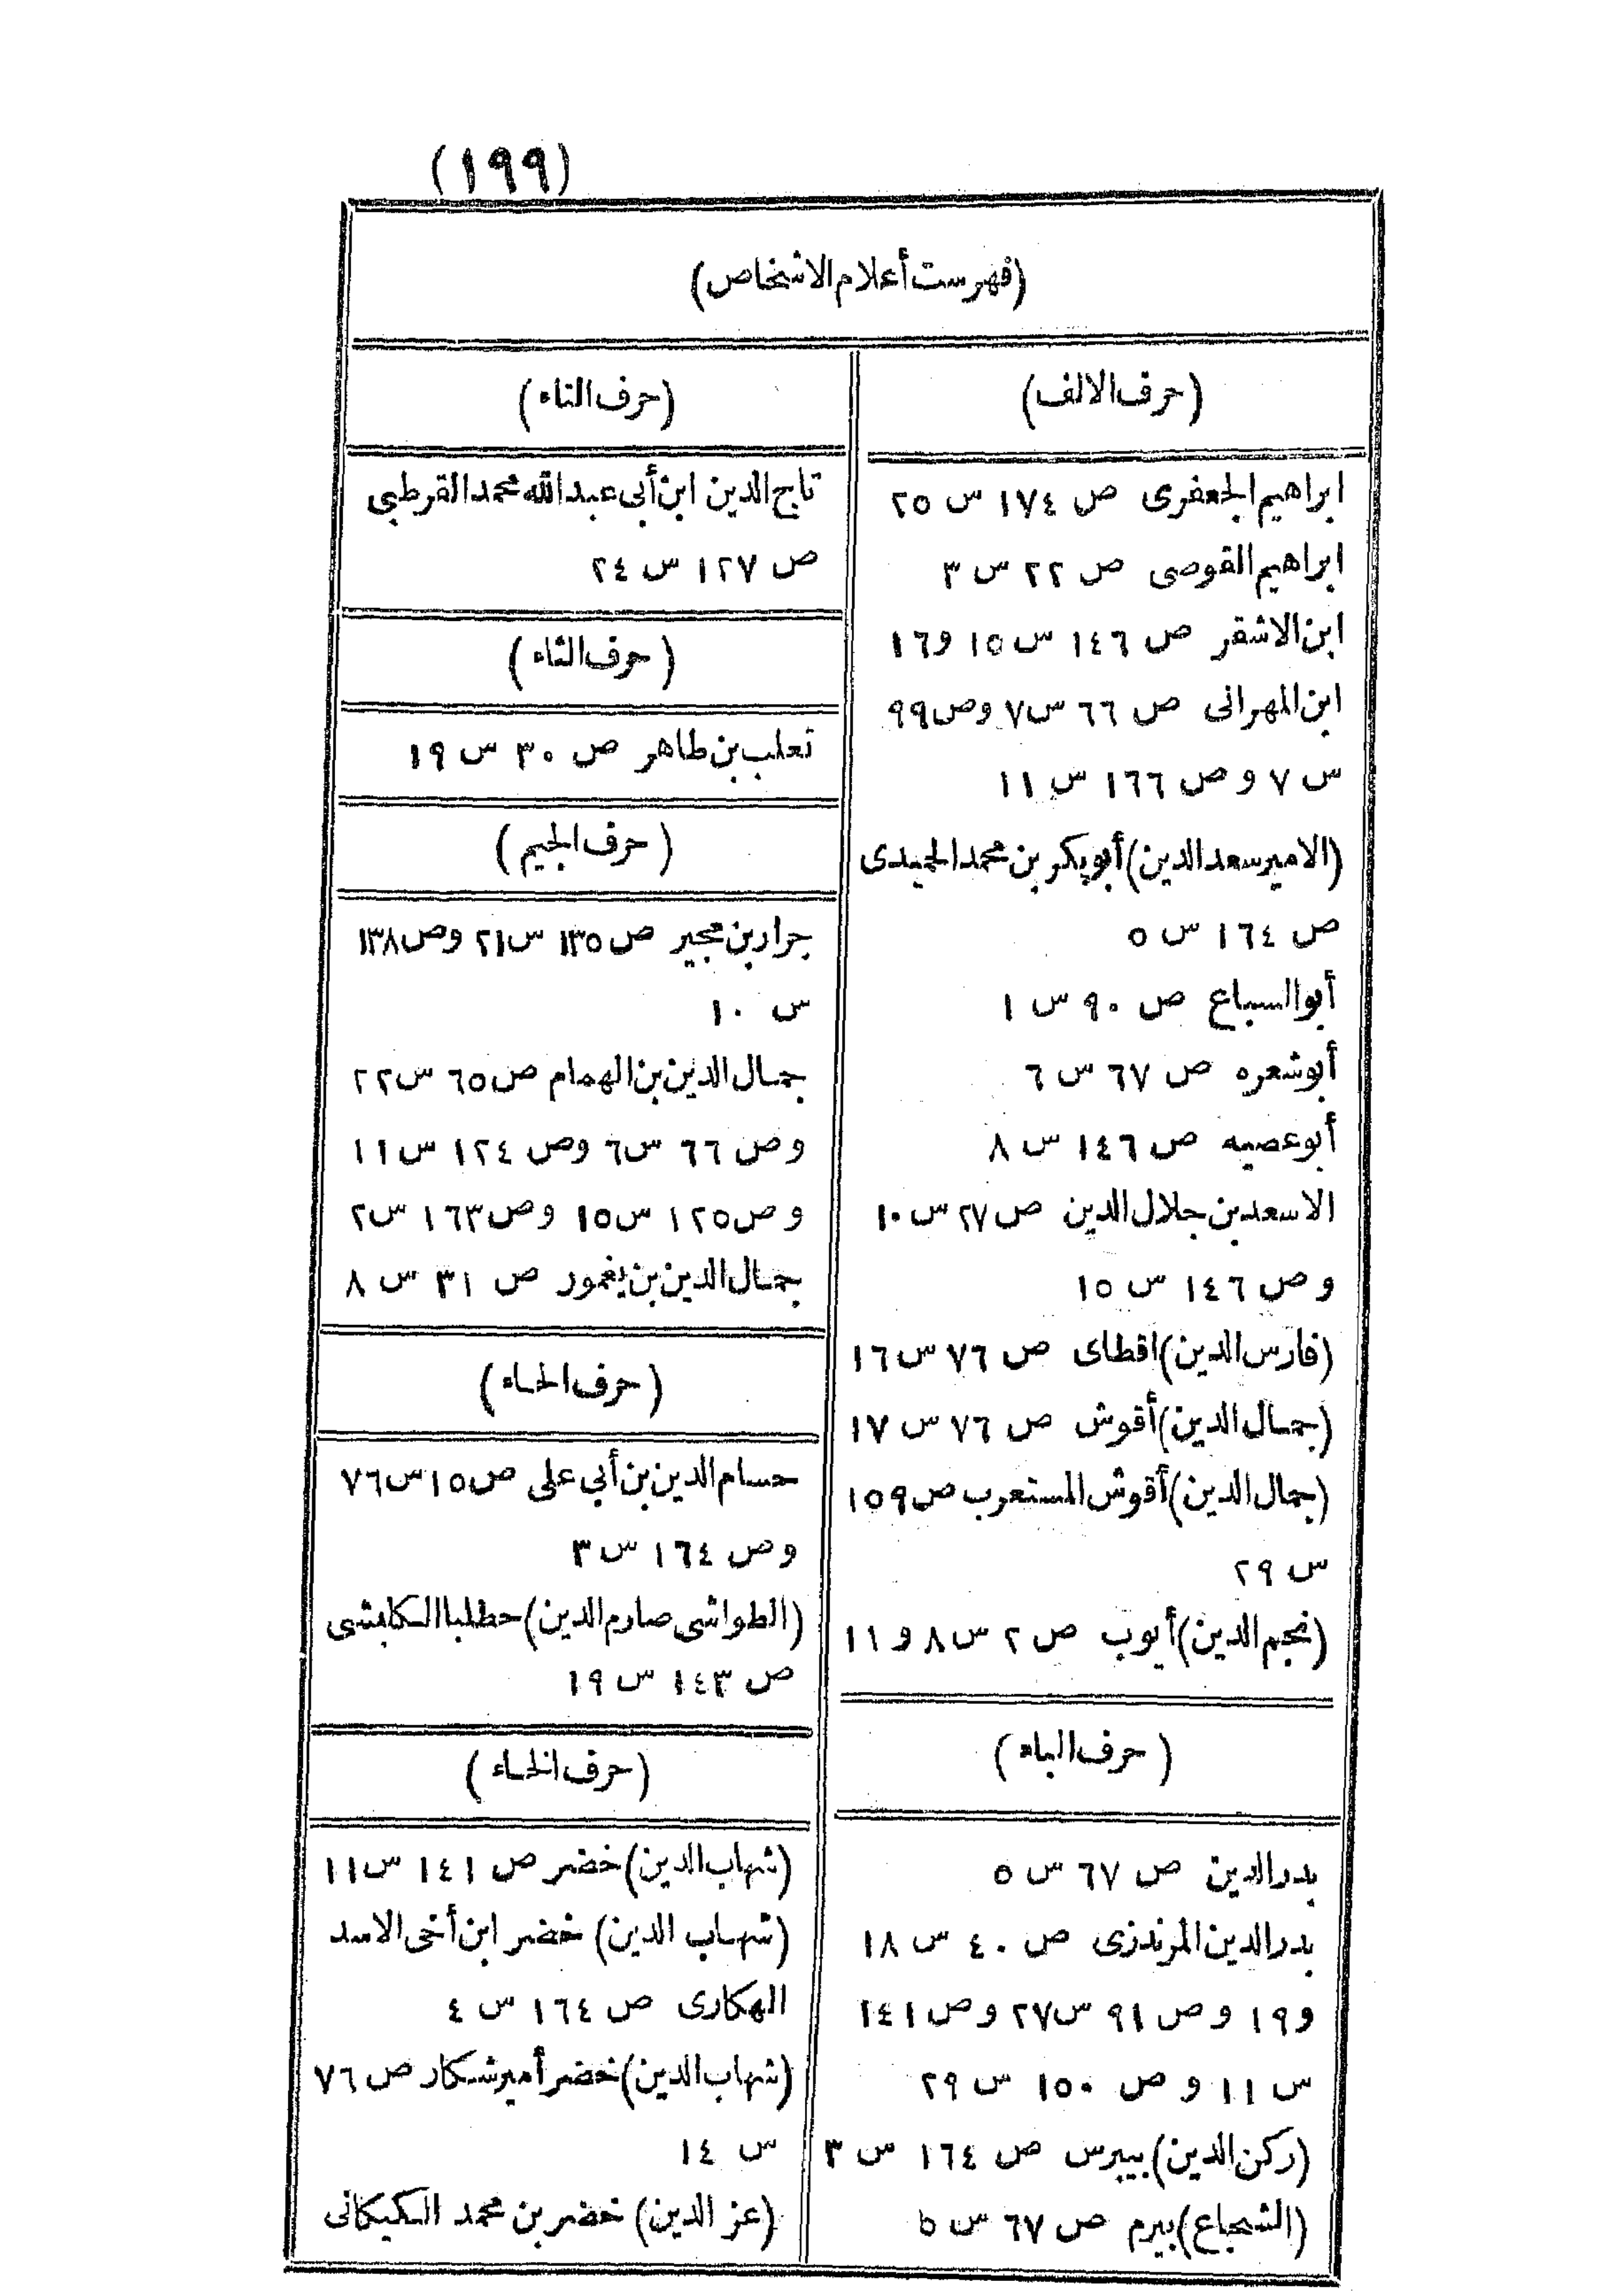 (١٩٩)
(فهرست أعلام الاشخاص)
(حرف الالف)
ابراهيم الجعفرى ص ١٧٤ س ٢٥
ابراهيم القوصى ص ٢٢ س ٣
ابن الاشقر ص ١٤٦ س ١٥ و١٦
ابن المهرانى ص ٦٦ س ٧ وص ٩٩
س ٧ و ص ١٦٦ س ١١
(الامير سعد الدين) أبو بكر بن محمد الحميدى
ص ١٦٤ س ٥
أبو السباع ص ٩٠ س ١
أبو شعره ص ٦٧ س ٦
أبو عصيه ص ١٤٦ س ٨
الاسعد بن جلال الدين ص ٢٧ س ١٠
و ص ١٤٦ س ١٥
(فارس الدين) اقطاى ص ٧٦ س ١٦
(جمال الدين) أقوش ص ٧٦ س ١٧
(جمال الدين) أقوش المستعرب ص ١٥٩
س ٢٩
(نجم الدين) أيوب ص ٢ س ٨ و ١١
(حرف الباء)
بدر الدين ص ٦٧ س ٥
بدر الدين المرندزى ص ٤٠ س ١٨
و ١٩ و ص ٩١ س ٢٧ و ص ١٤١
س ١١ و ص ١٥٠ س ٢٩
(ركن الدين) بيبرس ص ١٦٤ س ٣
(الشجاع) بيرم ص ٦٧ س ٥
(حرف التاء)
تاج الدين ابن أبى عبد الله محمد القرطبى
ص ١٢٧ س ٢٤
(حرف الثاء)
ثعلب بن طاهر ص ٣٠ س ١٩
(حرف الجيم)
جرار بن مجير ص ١٣٥ س ٢١ وص ١٣٨
س ١٠
جمال الدين بن الهمام ص ٦٥ س ٢٢
و ص ٦٦ س ٦ وص ١٢٤ س ١١
و ص ١٢٥ س ١٥ وص ١٦٣ س ٢
جمال الدين بن يغمور ص ٣١ س ٨
(حرف الحاء)
حسام الدين بن أبى على ص ١٥ س ٧٦
وص ١٦٤ س ٣
(الطواشى صارم الدين) حطلبا الكابشى
ص ١٤٣ س ١٩
(حرف الخاء)
(شهاب الدين) خضر ص ١٤١ س ١١
(شهاب الدين) خضر ابن أخى الاسد
الهكارى ص ١٦٤ س ٤
(شهاب الدين) خضر أمير شكار ص ٧٦
س ١٤
(عز الدين) خضر بن محمد الكيكانى